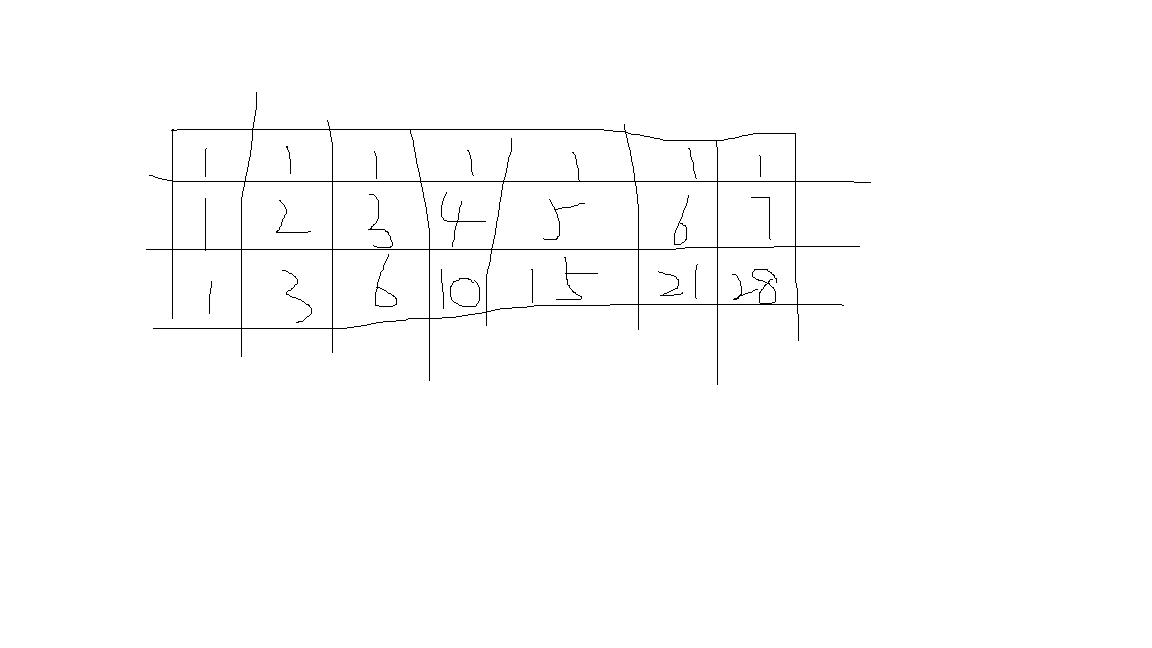 1 1 1 1 1 1 1
1 2 3 4 5 6 7
1 3 6 10 15 21 28